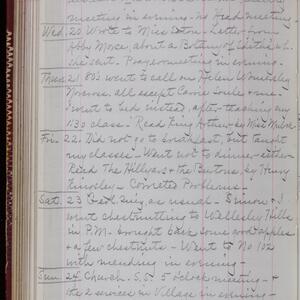 meeting in evening - no Head meeting
Wed. 20 Wrote to Miss Eaton - Letter from
Abby Morse, about a Botany of
she sent. Prayer meeting in evening.
Thurs. 21. 80's went to call on Helen
except Carrie Soule & me.
I went to bed instead, after teaching my
11:30 class. Read King Arthur - by Miss
Fri. 22. Did not go to breakfast, but taught
my classes - Went not to dinner - either -
Read The Hillyars & the Burtons, by Henry
Kingsley - Corrected Problems.
Sat. 23 as usual - & I
went chestnutting to Wellesley Hills
in P.M. brought back some good apples
& a few chestnuts - Went to No 102
with mending in evening -
Sun. 24 Church. S.S. 5 o'clock meeting - &
the 2 services in Village in evening -